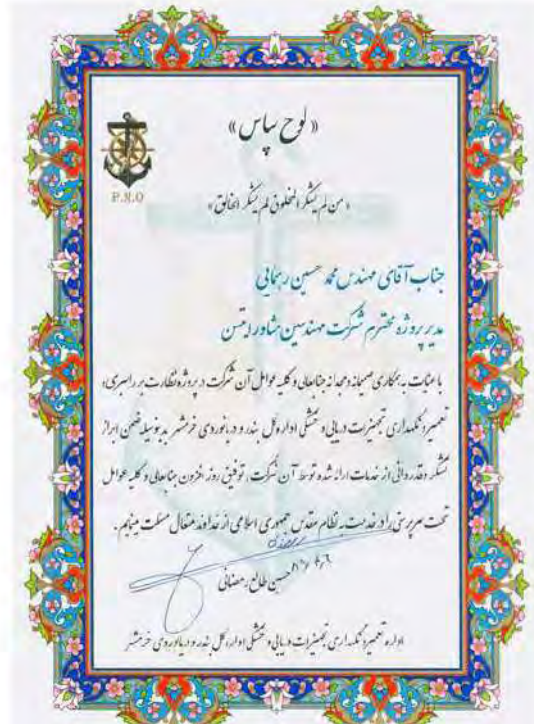 «لوح سپاس»
P.S.O
«من لم یشکر المخلوق لم یشکر الخالق»
جناب آقای مهندس محمد حسین رہمائی
مدیر پروژه محترم شرکت مهندسین مشاور
با عنایت به همکاری صمیمانه و مجدانه جنابعالی و کلیه عوامل آن شرکت در پروژه نظارت بر راهبری،
تعمیر و نگهداری تجهیزات دریایی و خشکی اداره کل بندر و دریانوردی خرمشهر بدینوسیله ضمن ابراز
تشکر و قدردانی از خدمات ارائه شده توسط آن شرکت، توفیق روز افزون جنابعالی و کلیه عوامل
تحت سرپرستی را در خدمت به نظام مقدس جمهوری اسلامی از خداوند متعال مسئلت مینمایم.
حسین طالع رمضانی
اداره تعمیر و نگهداری تجهیزات دریایی و خشکی اداره کل بندر و دریانوردی خرمشهر